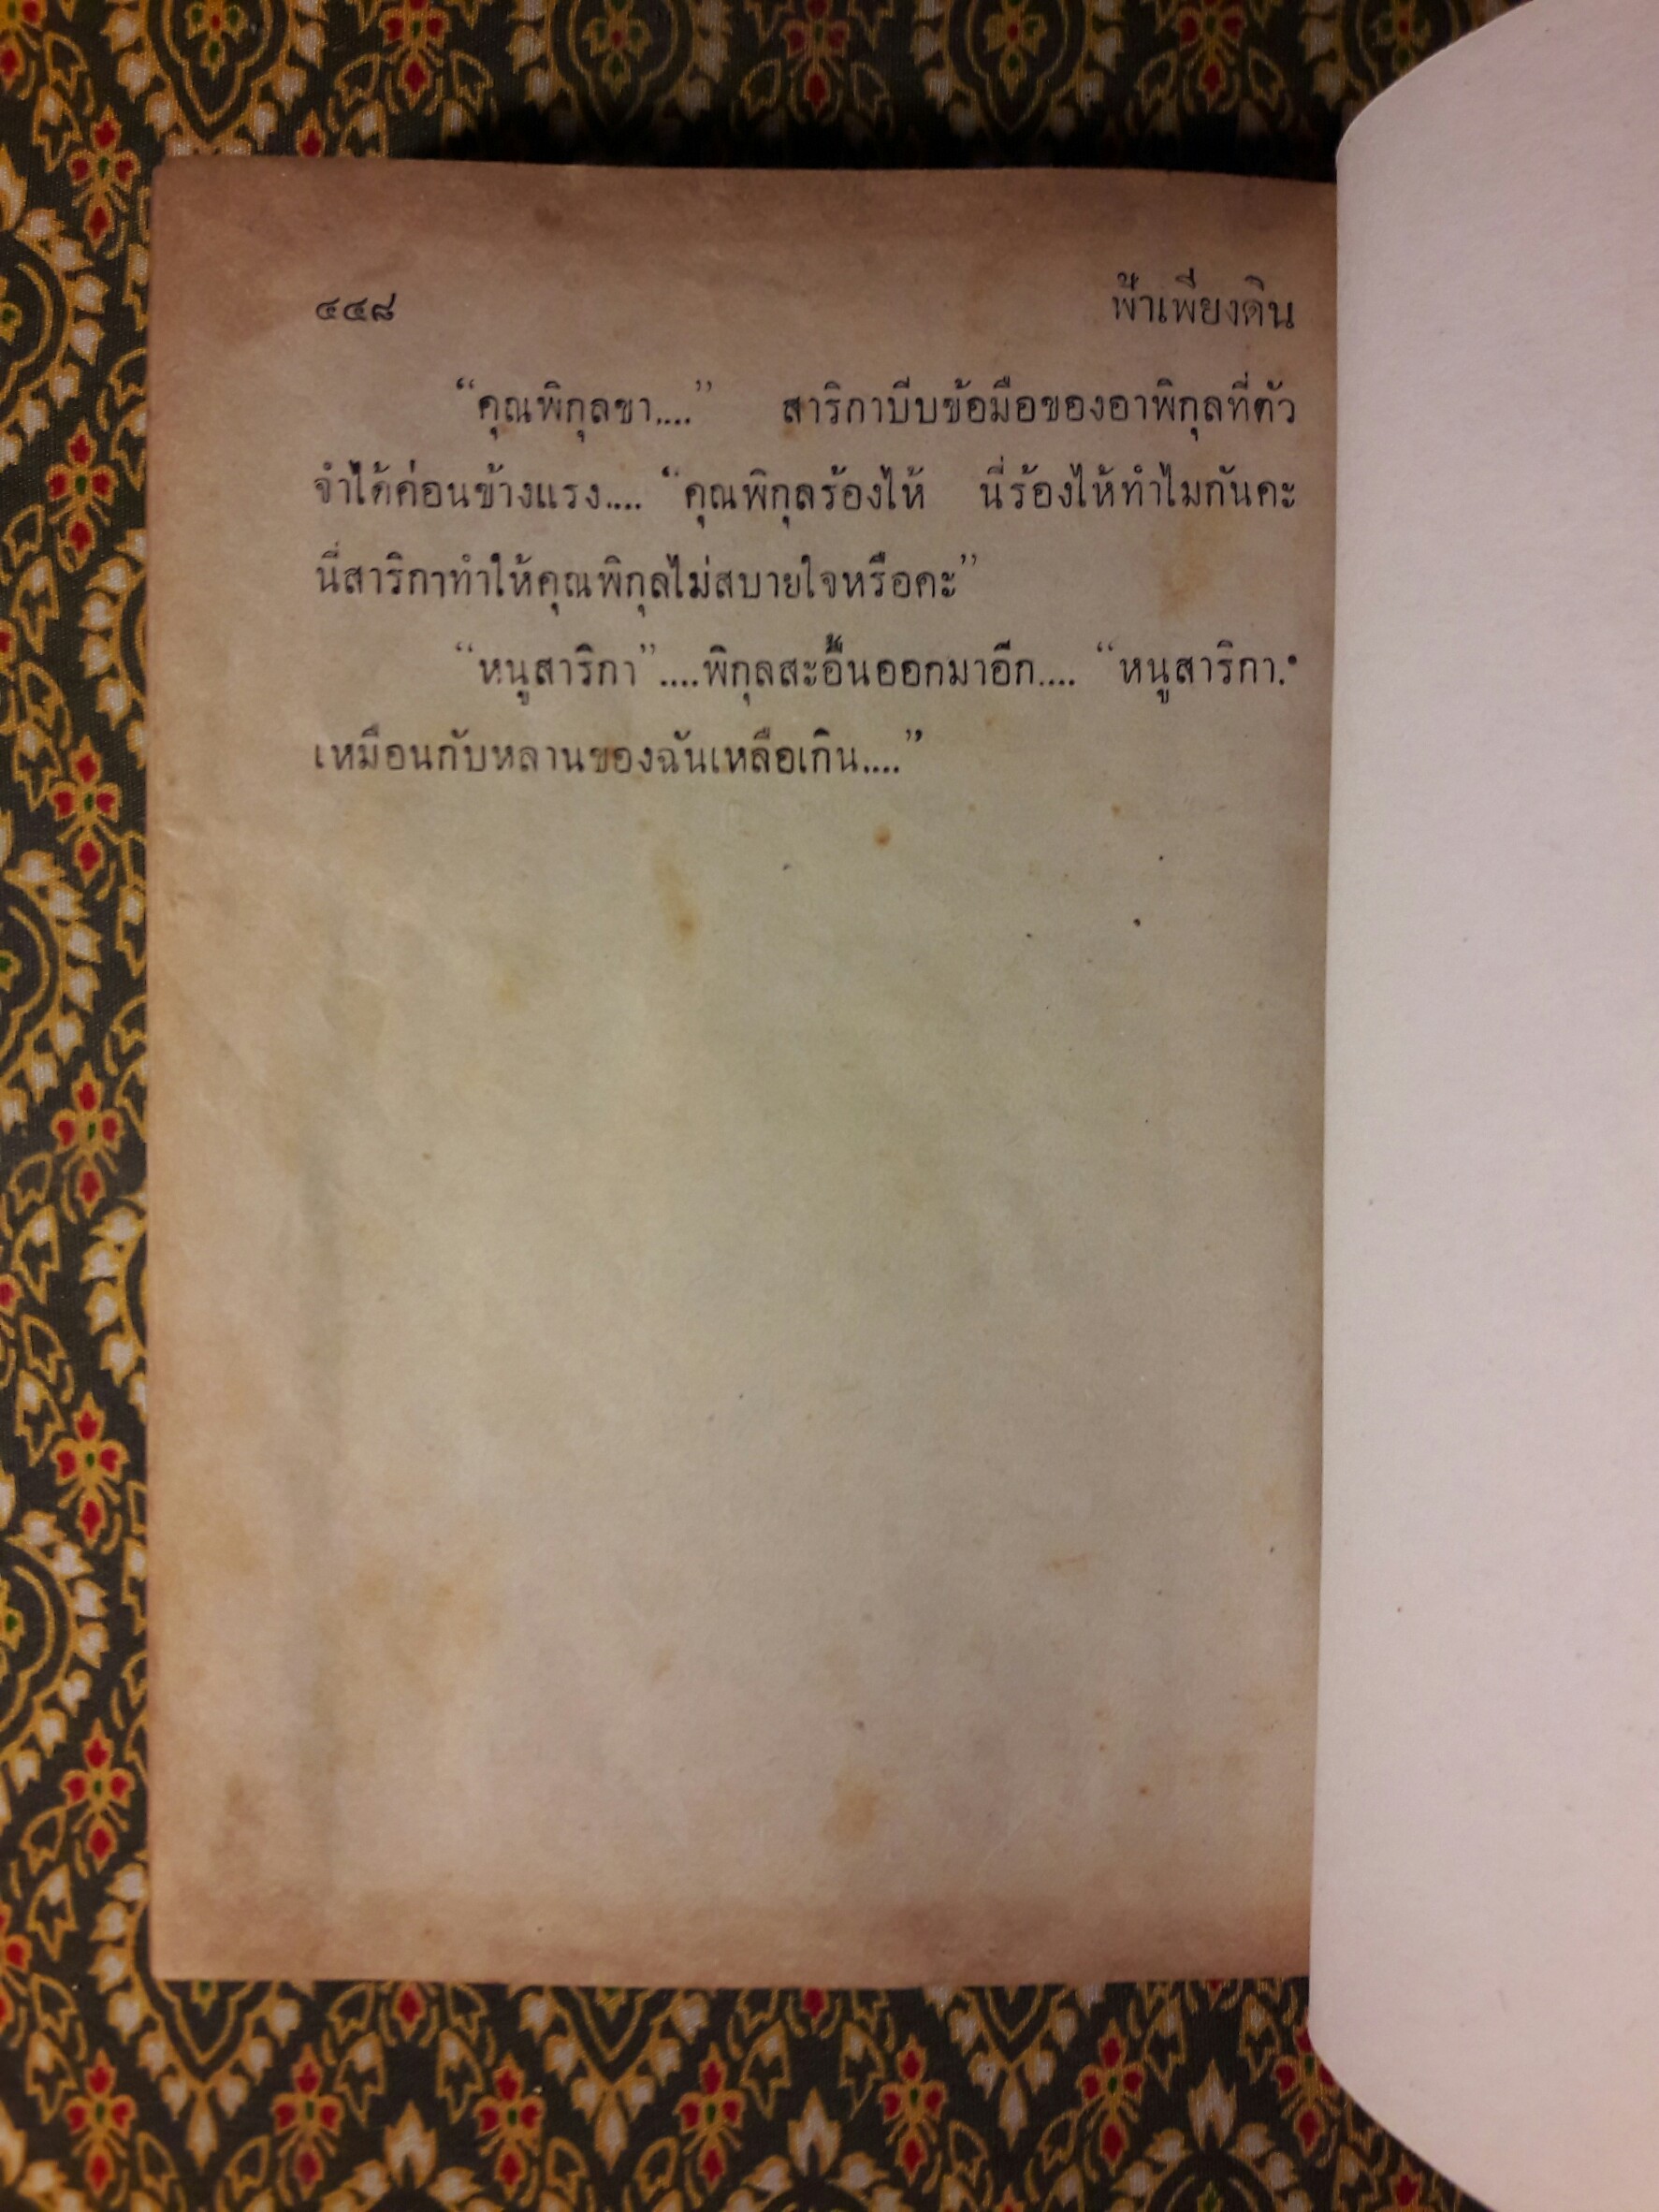 ๔๔๘ ฟ้าเพียงดิน
“คุณพิกุลขา....” สาริกาบีบข้อมือของอาพิกุลที่ตัว
จำได้ค่อนข้างแรง.... “คุณพิกุลร้องไห้ นี่ร้องไห้ทำไมกันคะ
นี่สาริกาทำให้คุณพิกุลไม่สบายใจหรือคะ”
“หนูสาริกา”....พิกุลสะอื้นออกมาอีก.... “หนูสาริกา.
เหมือนกับหลานของฉันเหลือเกิน....”